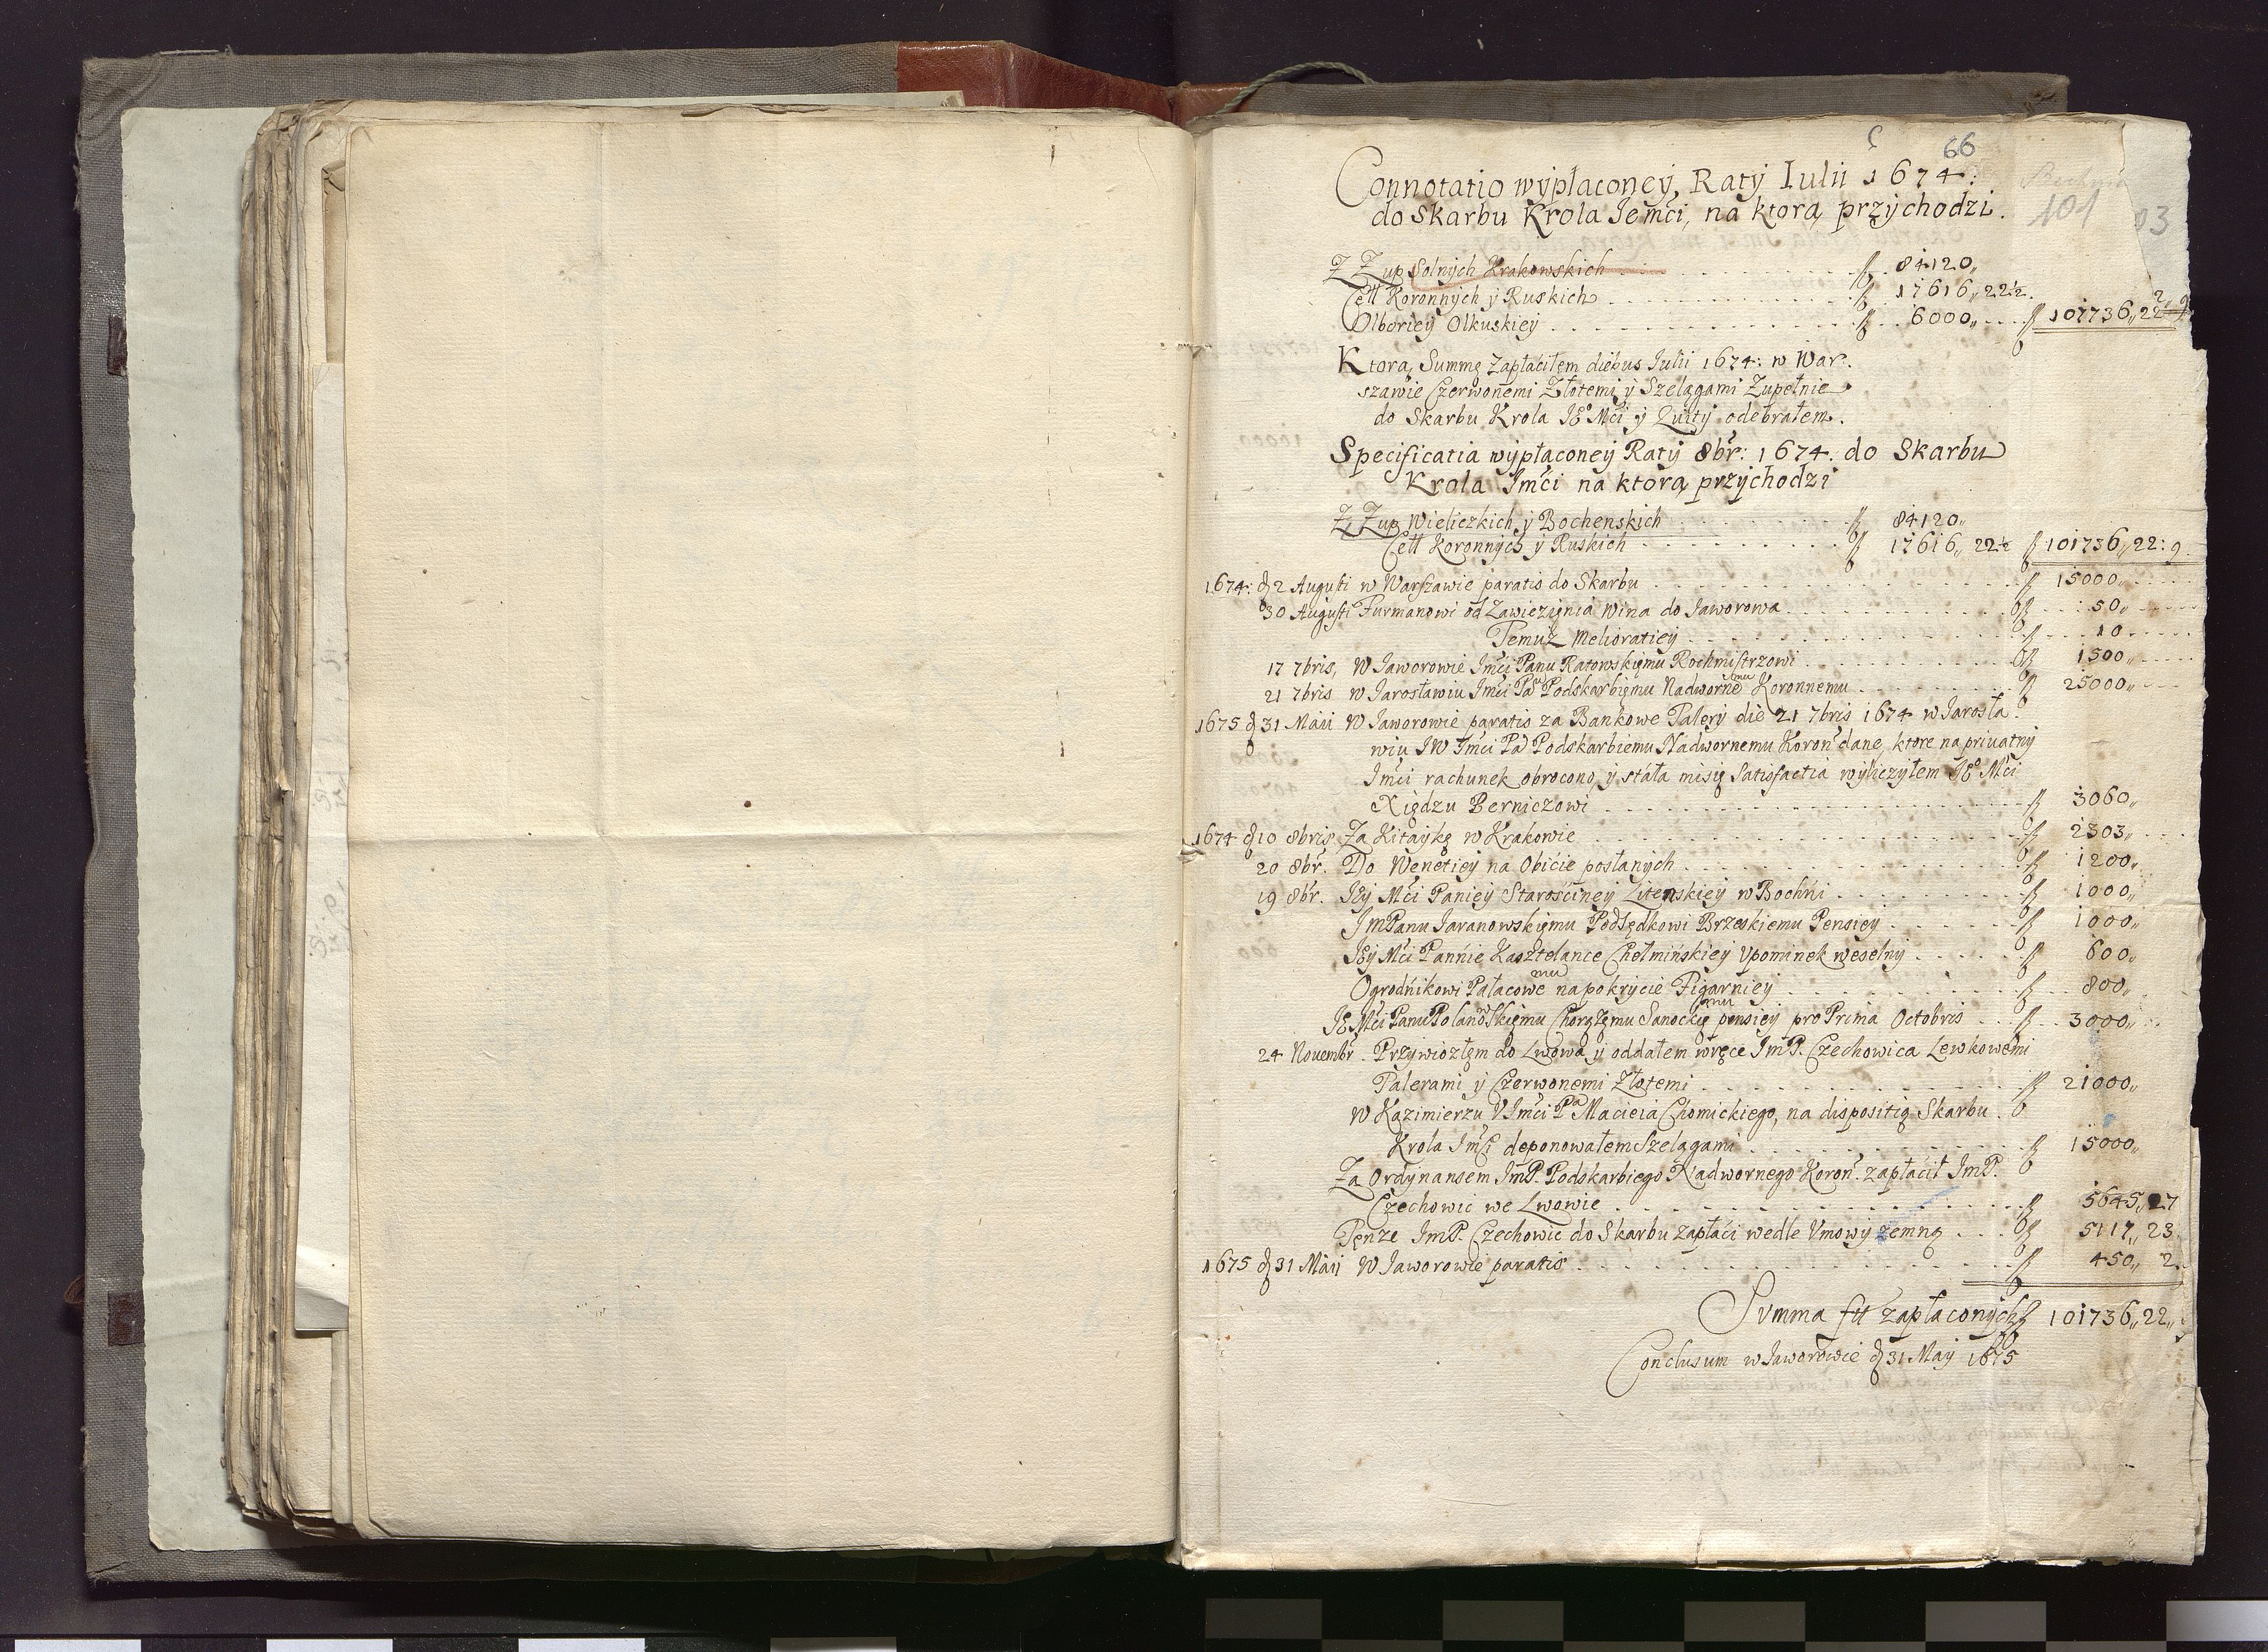 66
Connotatio wypłaconey, Raty Iulii 1674:
do Skarbu Krola Jemći, na ktorą przychodzi.
101
03
Z Zup Solnych Krakowskich . . . . . . . . . fl. 84120„
Cełł Koronnych y Ruskich . . . . . . . . . fl 17616„ 22½.
Olboriey Olkuskiey . . . . . . . . . fl 6000„ . . . fl 101736„ 22
Ktorą, Summę Zapłaćiłem diebus Iulii 1674: w War:
szawie Czerwonemi Złotemi, y Szelągami Zupełnie
do Skarbu Krola JE° Mći y Quity odebrałem.
Specificatia wypłaconey Raty 8br: 1674. do Skarbu
Krola Jmći na ktorą przychodzi
Z, Zup Wieliczkich, y Bochenskich . . . . . . fl 84120„
Cełł Koronnych y Ruskich . . . . . . fl 17616„ 22½ fl 101736„ 22: 9.
1674: d 2 Augusti w Warszawie paratis do Skarbu . . . . . . fl 15000„
30 Augusti Furmanowi od Zawiezięnia Wina do Jaworowa . . . . . . fl 50„
Temuż Melioratiey . . . . . . fl 10
17 7bris, W Jaworowie Jmći Panu Ratowskięmu Rochmistrzowi . . . . . . fl 1500„
21 7bris w Jarosławiu Jmći Pu Podskarbięmu Nadwornemu Koronnemu . . . . . . fl 25000„
1675 d 31 Maii W Jaworowie paratis za Bankowe Talery die 21 7bris 1674 w Jarosła:
wiu JW Jmći Pu Podskarbiemu Nadwornemu Koron dane, ktore na priuatny
Jmći rachunek obrocono, y stała mi się Satisfactia wyliczyłem JE° Mći
Xiędzu Berniczowi . . . . . . fl 3060„
1674 d 10 8bris Za Kitaykę w Krakowie . . . . . . fl 2303„
20 8br. Do Wenetiey na Obićie posłanych . . . . . . fl 1200„
19 8br. JEy Mći Paniey Starośćiney Zitenskiey w Bochńi . . . . . . fl 1000„
JmPanu Jaranowskięmu Podsędkowi Brzeskiemu Pensiey . . . . . . fl 1000„
JEy Mći Pannie Kasztelance Chełmińskiey Vpominek weselny . . . . . . fl 600„
Ogrodnikowi Pałacowemu na pokrycie Figarniey . . . . . . fl 800„
JE Mći Panu Polanowskięmu Chorążęmu Sanockięmu pensiey pro Prima Octobris . . . fl 3000„
24 Novembr. Przywiozłęm do Lwowa y oddałem wręce JmP. Czechowica Lewkowemi
Talerami y Czerwonemi Złotemi . . . . . . fl 21000„
W Kazimierzu V Jmći Pa Macieia Chomickiego, na dispositią Skarbu
Krola Jmći deponowałem Szelągami . . . . . . fl 15000„
Za Ordynansem JmP. Podskarbiego Nadwornego Koron. zapłaćił JmP.
Czechowic we Lwowie . . . . . . fl 5645„ 27
Tęnze JmP. Czechowic do Skarbu zapłaći wedle Vmowy zemną . . . fl 5117„ 23.
1675 d 31 Maii W Jaworowie paratis . . . . . . fl 450„ 2.
Summa fłł zapłaconych fl 101736„ 22„
Conclusum w Jaworowie d 31 Maij 1675